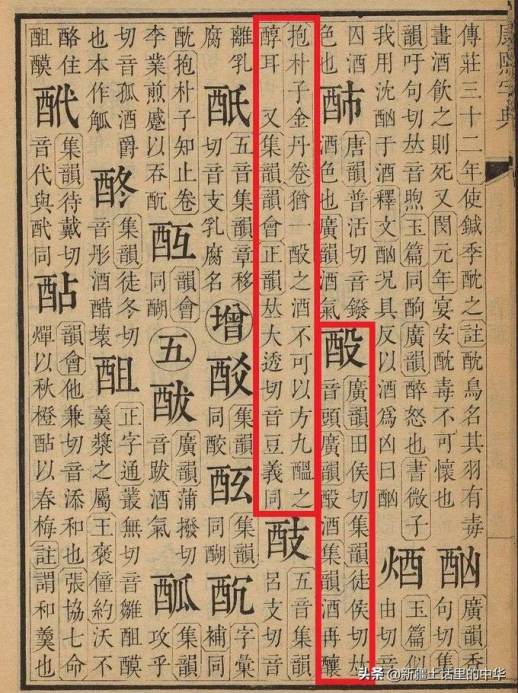 康熙字典
傳莊三十二年使鍼季酖之註酖鳥名其羽有毒
畫酒飲之則死又閔元年宴安酖毒不可懷也
酗
廣韻香
句切集
韻吁句切𠀤音煦玉篇同酌廣韻醉怒也書微子
我用沈酗于酒釋文酗况具反以酒爲凶曰酗
玉篇似
由切音
囚酒
色也
唐韻普活切音鏺
酒色也廣韻酒氣
酘
廣韻田侯切集韻徒侯切𠀤
音頭廣韻酘酒集韻酒再釀
抱朴子金丹卷猶一酘之酒不可以方九醞之
醇耳 又集韻韻會正韻𠀤大透切音豆義同
五音集韻
呂支切音
離乳
腐
五音集韻章移
切音支乳腐名
增
集韻
集韻
同醐
酖
字彙
補同
酖抱朴子知止卷
李業煎蹙以吞酖
韻會
同醐
五
廣韻蒲撥切
音跋酒氣
集韻
攻乎
切音孤酒爵
也本作觚
集韻徒冬切
音彤酒醋壞
正字通叢無切音雛
羹漿之屬王褒僮約沃不
酪住
集韻待戴切
音代與同
酟
韻會他兼切音添和也張協七命
燀以秋橙酟以春梅註謂和羹也
头条 @新疆土话里的中华